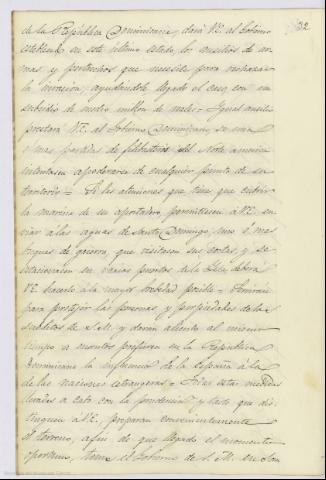 32
de la República Dominicana, dará V.E. al Gobierno
establecido en este último estado los auxilios de ar-
mas y pertrechos que necesite para rechazar
la invasión, ayudándole llegado el caso con un
subsidio de medio millon de reales = Igual auxilio
prestará V.E. al Gobierno Dominicano, si una
o mas partidas de filibusteros del Norte america
intentasen apoderarse de cualquier punto de su
territorio = Si las atenciones que tiene que cubrir
la marina de su apostadero, permitiesen á V.E. en-
viar á las aguas de Santo Domingo, uno ó mas
buques de guerra, que visitasen sus costas y se
estacionasen en varios puertos de la Isla, deberá
V.E. hacerlo á la mayor brevedad posible = Servirán
para protejer las personas y propiedades de los
subditos de S.M. y darán aliento al mismo
tiempo a cuantos prefieren en la República
Dominicana la influencia de la España á la
de las naciones extrangeras = Todas estas medidas
llevadas a cabo con la prudencia y tacto que dis-
tinguen á V.E., preparan convenientemente
el terreno, afin de que llegado el momento
oportuno, tome el Gobierno de S.M. en San